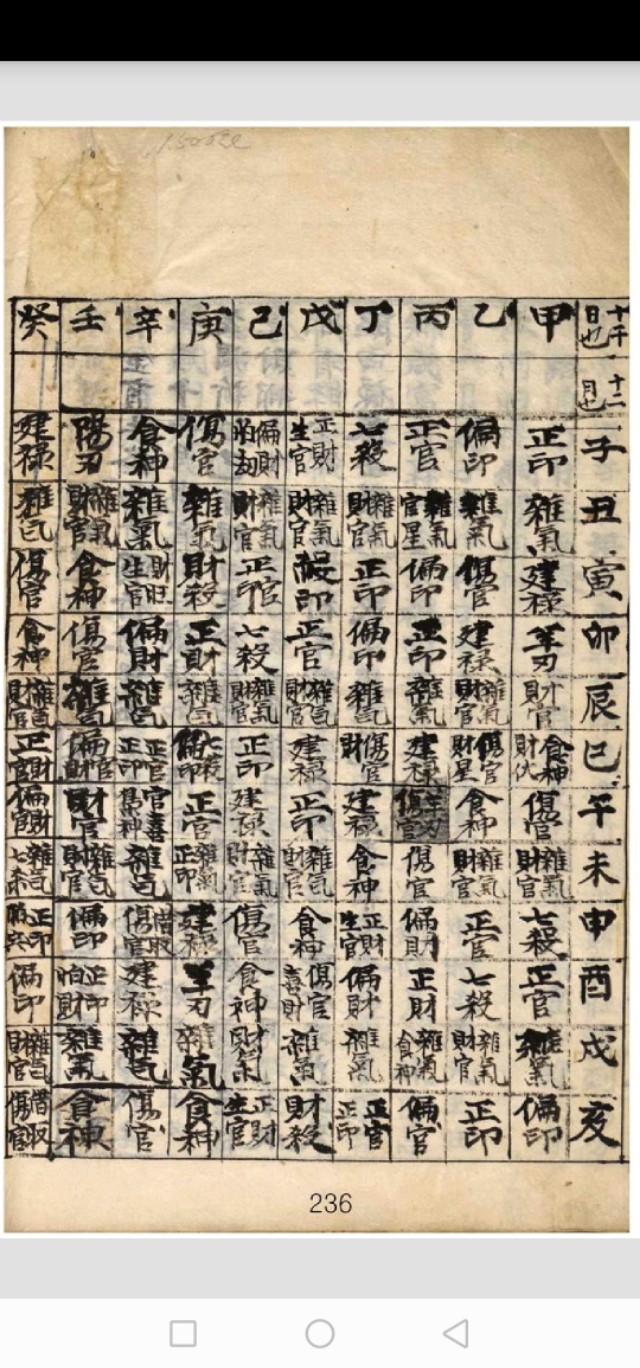 十干日也 十二月也
甲 乙 丙 丁 戊 己 庚 辛 壬 癸
子 正印 偏印 正官 七殺 正財生官 偏財 傷官 食神 陽刃 建禄
丑 雜氣 雜氣 雜氣官星 雜氣財官 雜氣財官 雜氣財官 雜氣 雜氣 雜氣財官 雜氣
寅 建禄 傷官 偏印 正印 印 正官印 財殺 財旺生官 食神 傷官
卯 羊刃 建禄 正印 偏印 正官 七殺 正財 偏財 傷官 食神
辰 財官 雜氣財官 雜氣 雜氣 雜氣財官 雜氣財官 雜氣 雜氣 雜氣 雜氣財官
巳 食神財 傷官財星 建禄 傷官財 建禄 正印 七殺偏印 正官正印 偏官財官 正財正官
午 傷官 食神 羊刃傷官 建禄 正印 建禄 正官 官喜神 財官 偏財官
未 雜氣財官 雜氣財官 傷官 食神 雜氣財官 雜氣財官 雜氣正印 雜氣 雜氣財官 雜氣七殺
申 七殺 正官 偏財 正財生官 食神 傷官 建禄 借取傷官 偏印 正印
酉 正官 七殺 正財 偏財 傷官喜財 食神 羊刃 建禄 正印 偏印
戌 雜氣 雜氣財官 雜氣食神 雜氣 雜氣 財氣 雜氣 雜氣 雜氣 雜氣財官
亥 偏印 正印 偏官 正官正印 財殺 正財生官 食神 傷官 食神 借取傷官
236